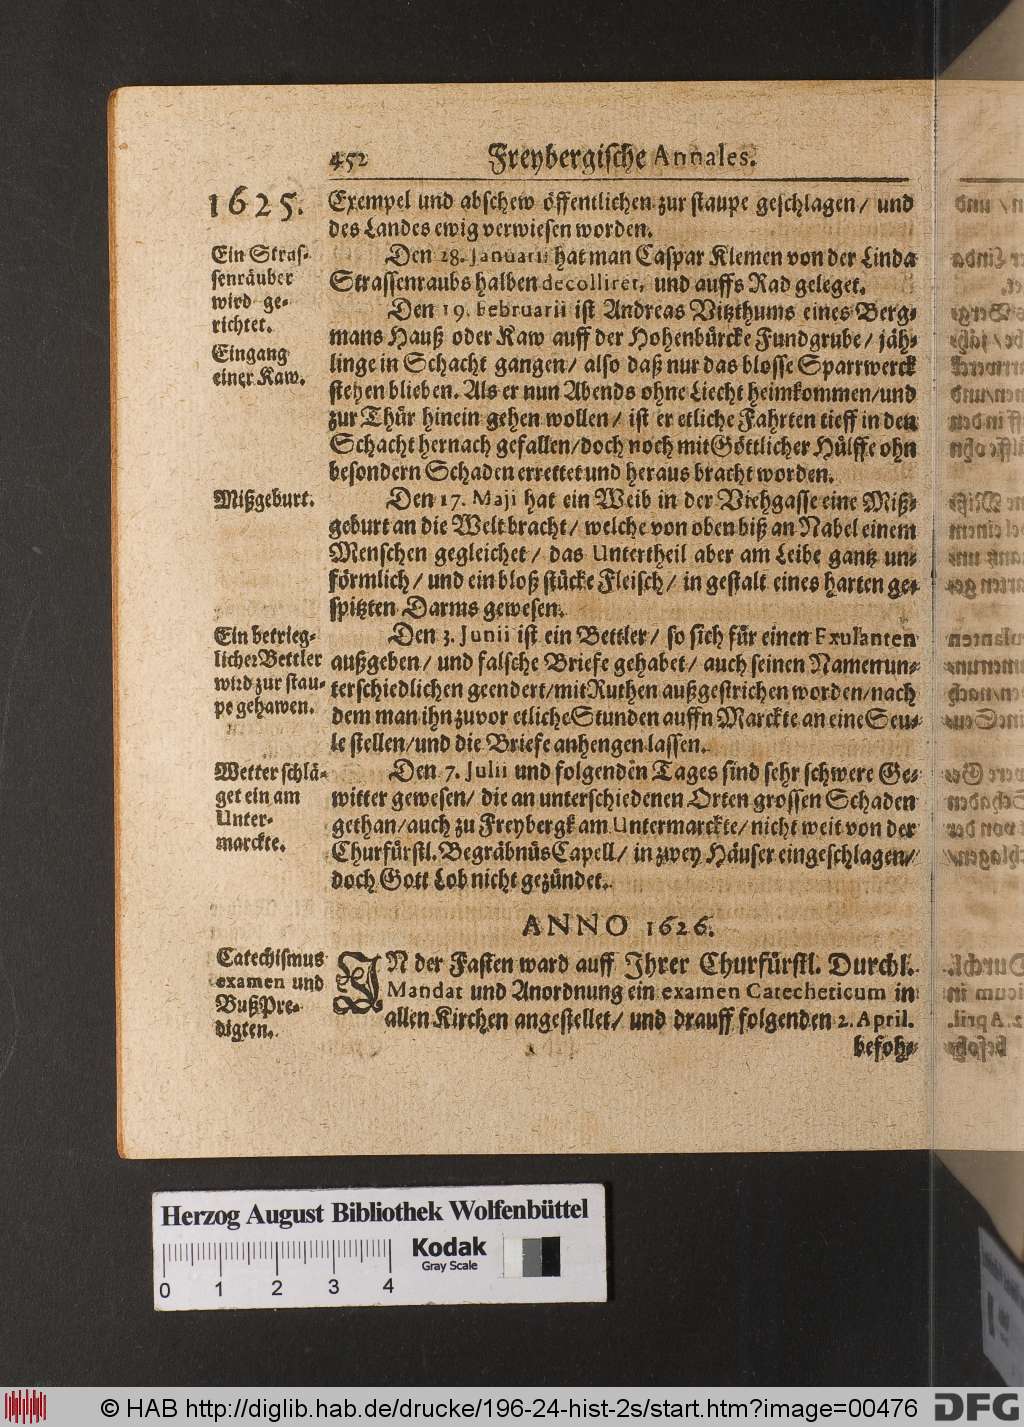 452 Freybergische Annales.
1625.
Exempel und abschew öffentlichen zur staupe geschlagen/ und
des Landes ewig verwiesen worden.
Ein Stras-
senräuber
wird ge-
richtet.
Den 28. Januarii hat man Caspar Klemen von der Linda
Strassenraubs halben decolliret, und auffs Rad geleget.
Eingang
einer Kaw.
Den 19. Februarii ist Andreas Vitzthums eines Berg-
mans Hauß oder Kaw auff der Hohenbürcke Fundgrube/ jäh-
linge in Schacht gangen/ also daß nur das blosse Sparrwerck
stehen blieben. Als er nun Abends ohne Liecht heimkommen/und
zur Thür hinein gehen wollen/ ist er etliche Fahrten tieff in den
Schacht hernach gefallen/doch noch mit Göttlicher Hülffe ohn
besondern Schaden errettet und heraus bracht worden.
Mißgeburt.
Den 17. Maji hat ein Weib in der Viehgasse eine Miß-
geburt an die Welt bracht/ welche von oben biß an Nabel einem
Menschen gegleichet/ das Untertheil aber am Leibe gantz un-
förmlich/ und ein bloß stücke Fleisch/ in gestalt eines harten ge-
spitzten Darms gewesen.
Ein betrieg-
licher Bettler
wird zur stau-
pe gehawen.
Den 3. Junii ist ein Bettler/ so sich für einen Exulanten
außgeben/ und falsche Briefe gehabet/ auch seinen Namen un-
terschiedlichen geendert/mit Ruthen außgestrichen worden/nach
dem man ihn zuvor etliche Stunden auffn Marckte an eine Seu-
le stellen/und die Briefe anhengen lassen.
Wetter schlä-
get ein am
Unter-
marckte.
Den 7. Julii und folgenden Tages sind sehr schwere Ge-
witter gewesen/ die an unterschiedenen Orten grossen Schaden
gethan/auch zu Freybergk am Untermarckte/ nicht weit von der
Churfürstl. Begräbnüs Capell/ in zwey Häuser eingeschlagen/
doch Gott Lob nicht gezündet.
ANNO 1626.
Catechismus
examen und
Buß Pre-
digten.
IN der Fasten ward auff Ihrer Churfürstl. Durchl.
Mandat und Anordnung ein examen Catecheticum in
allen Kirchen angestellet/ und drauff folgenden 2. April.
befoh-
Herzog August Bibliothek Wolfenbüttel
Kodak
Gray Scale
0 1 2 3 4
© HAB http://diglib.hab.de/drucke/196-24-hist-2s/start.htm?image=00476
DFG